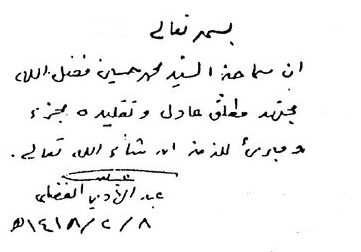 بسمه تعالى
ان سماحة السيد محمد حسين فضل الله
مجتهد مطلق عادل وتقليده مجزء
ومبرئ للذمة ان شاء الله تعالى.
عبد الهادي الفضلي
١٤١٨/٢/٨هـ